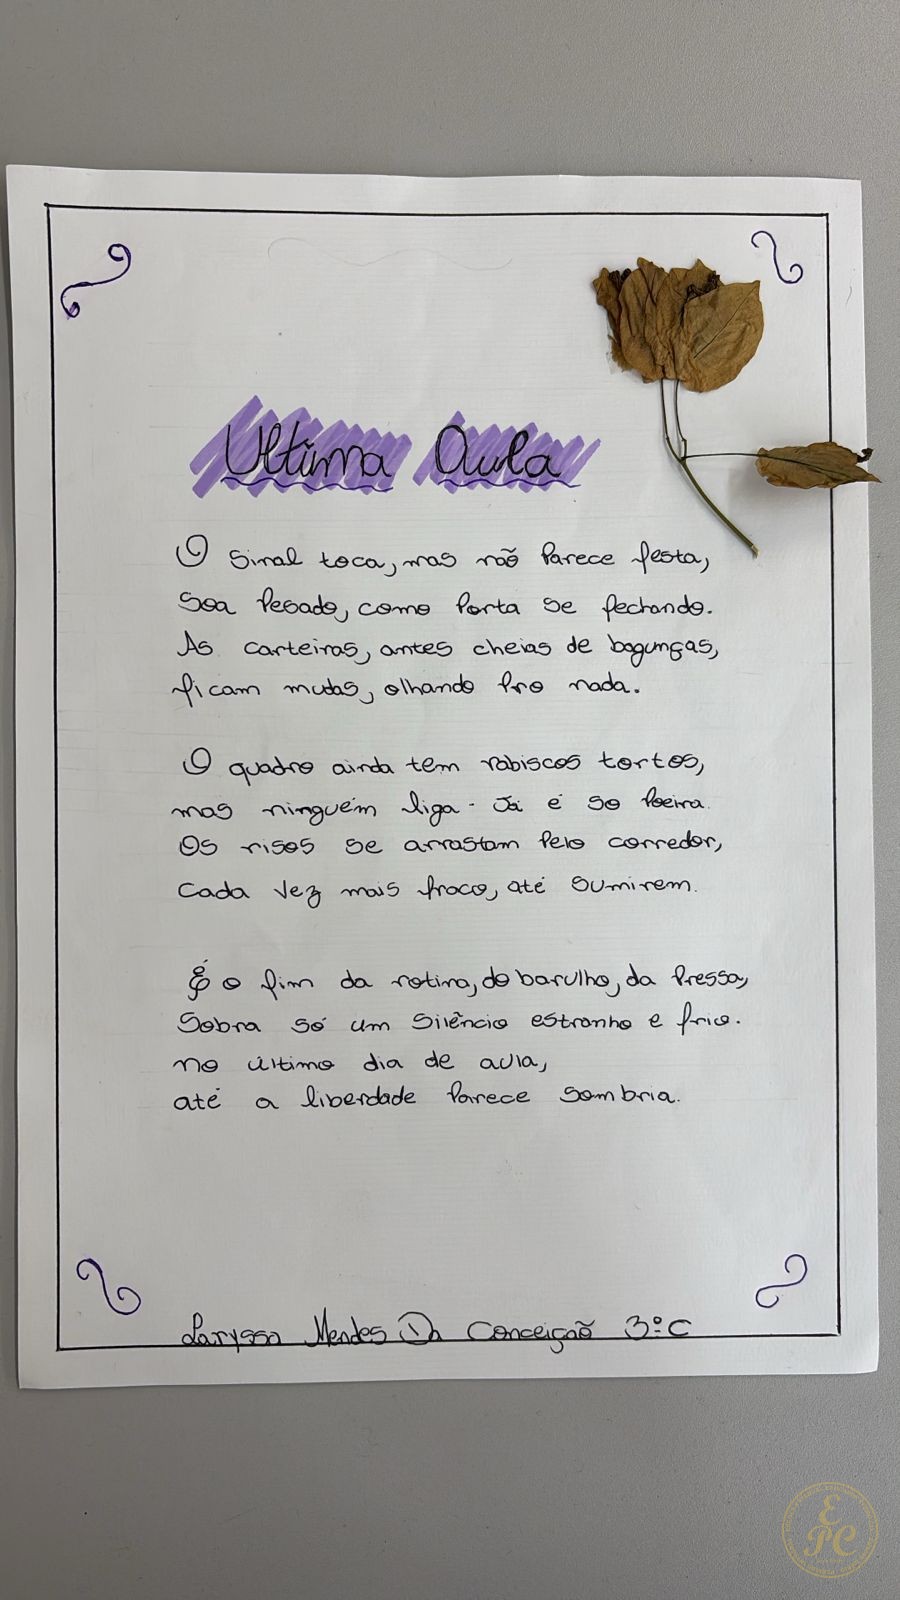 Ultima Aula
O sinal toca, mas não parece festa,
Soa pesado, como porta se fechando.
As carteiras, antes cheias de bagunças,
ficam mudas, olhando pro nada.
O quadro ainda tem rabiscos tortos,
mas ninguém liga - Já é so poeira.
Os risos se arrastam pelo corredor,
Cada vez mais fraco, até sumirem.
É o fim da rotina, do barulho, da pressa,
Sobra só um silêncio estranho e frio.
no último dia de aula,
até a liberdade parece sombria.
Laryssa Mendes Da Conceição 3º C
EPC